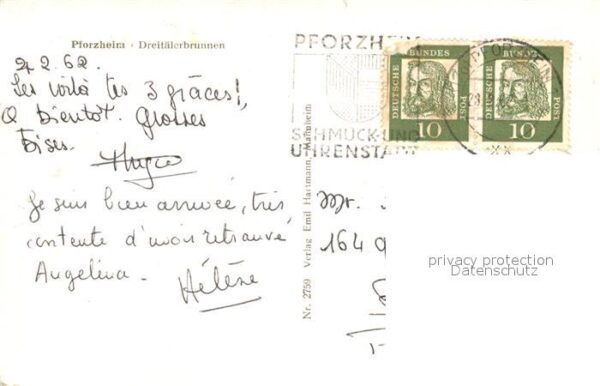 Pforzheim - Dreitälerbrunnen
2.2.62.
Les voilà tes 3 grâces!,
A bientôt. Grosses
Bises.
Je suis bien arrivée, très
contente d'avoir retrouvé
Angelina.
Hélène
Nr. 2759 Verlag Emil Hartmann, Mannheim
PFORZHEIM
SCHMUCK-UND
UHRENSTADT
DEUTSCHE BUNDES POST
10
DEUTSCHE BUNDES POST
10
Mr.
164
privacy protection
Datenschutz